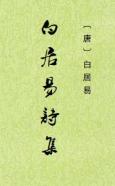 〔唐〕白居易
白居易詩集